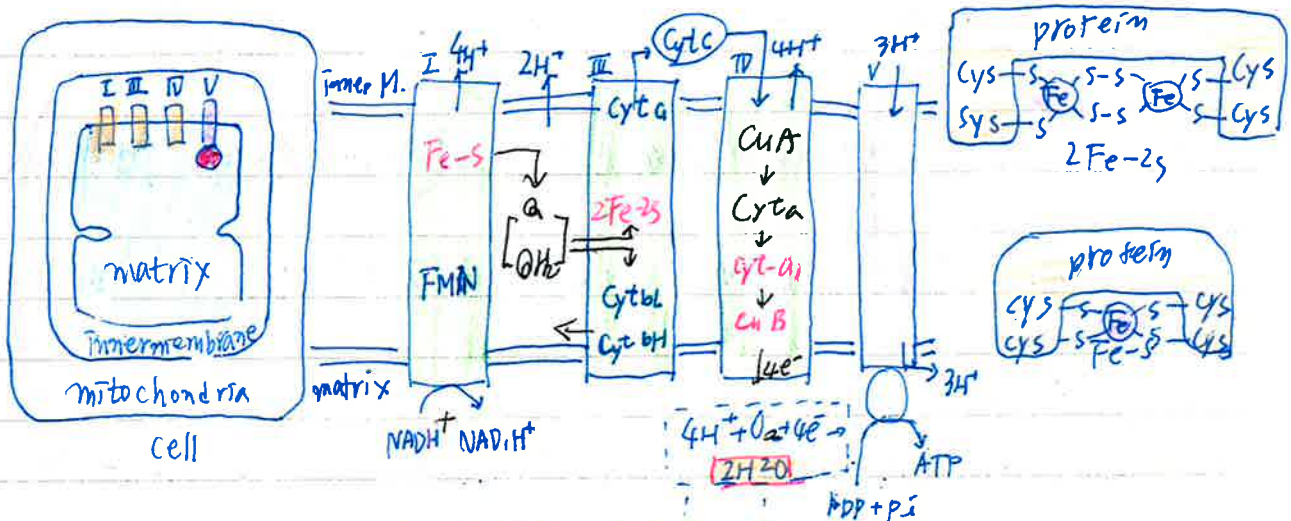 I III IV V
matrix
innermembrane
mitochondria
cell
inner M.
matrix
I
4H⁺
Fe-S
FMN
NADH⁺ NAD,H⁺
2H⁺
Q
QH₂
III
Cytc
2Fe-2s
Cyt bL
Cyt bH
Cytc
IV
4H⁺
CuA
Cyta
Cyt-a₁
Cu B
4e⁻
4H⁺+O₂+4e⁻→
2H2O
3H⁺
V
3H⁺
ATP
ADP+Pi
protein
Cys S S-S S Cys
Fe Fe
Sys S S-S S Cys
2Fe-2s
protein
Cys S S Cys
Fe
Cys S S Cys
Fe-S